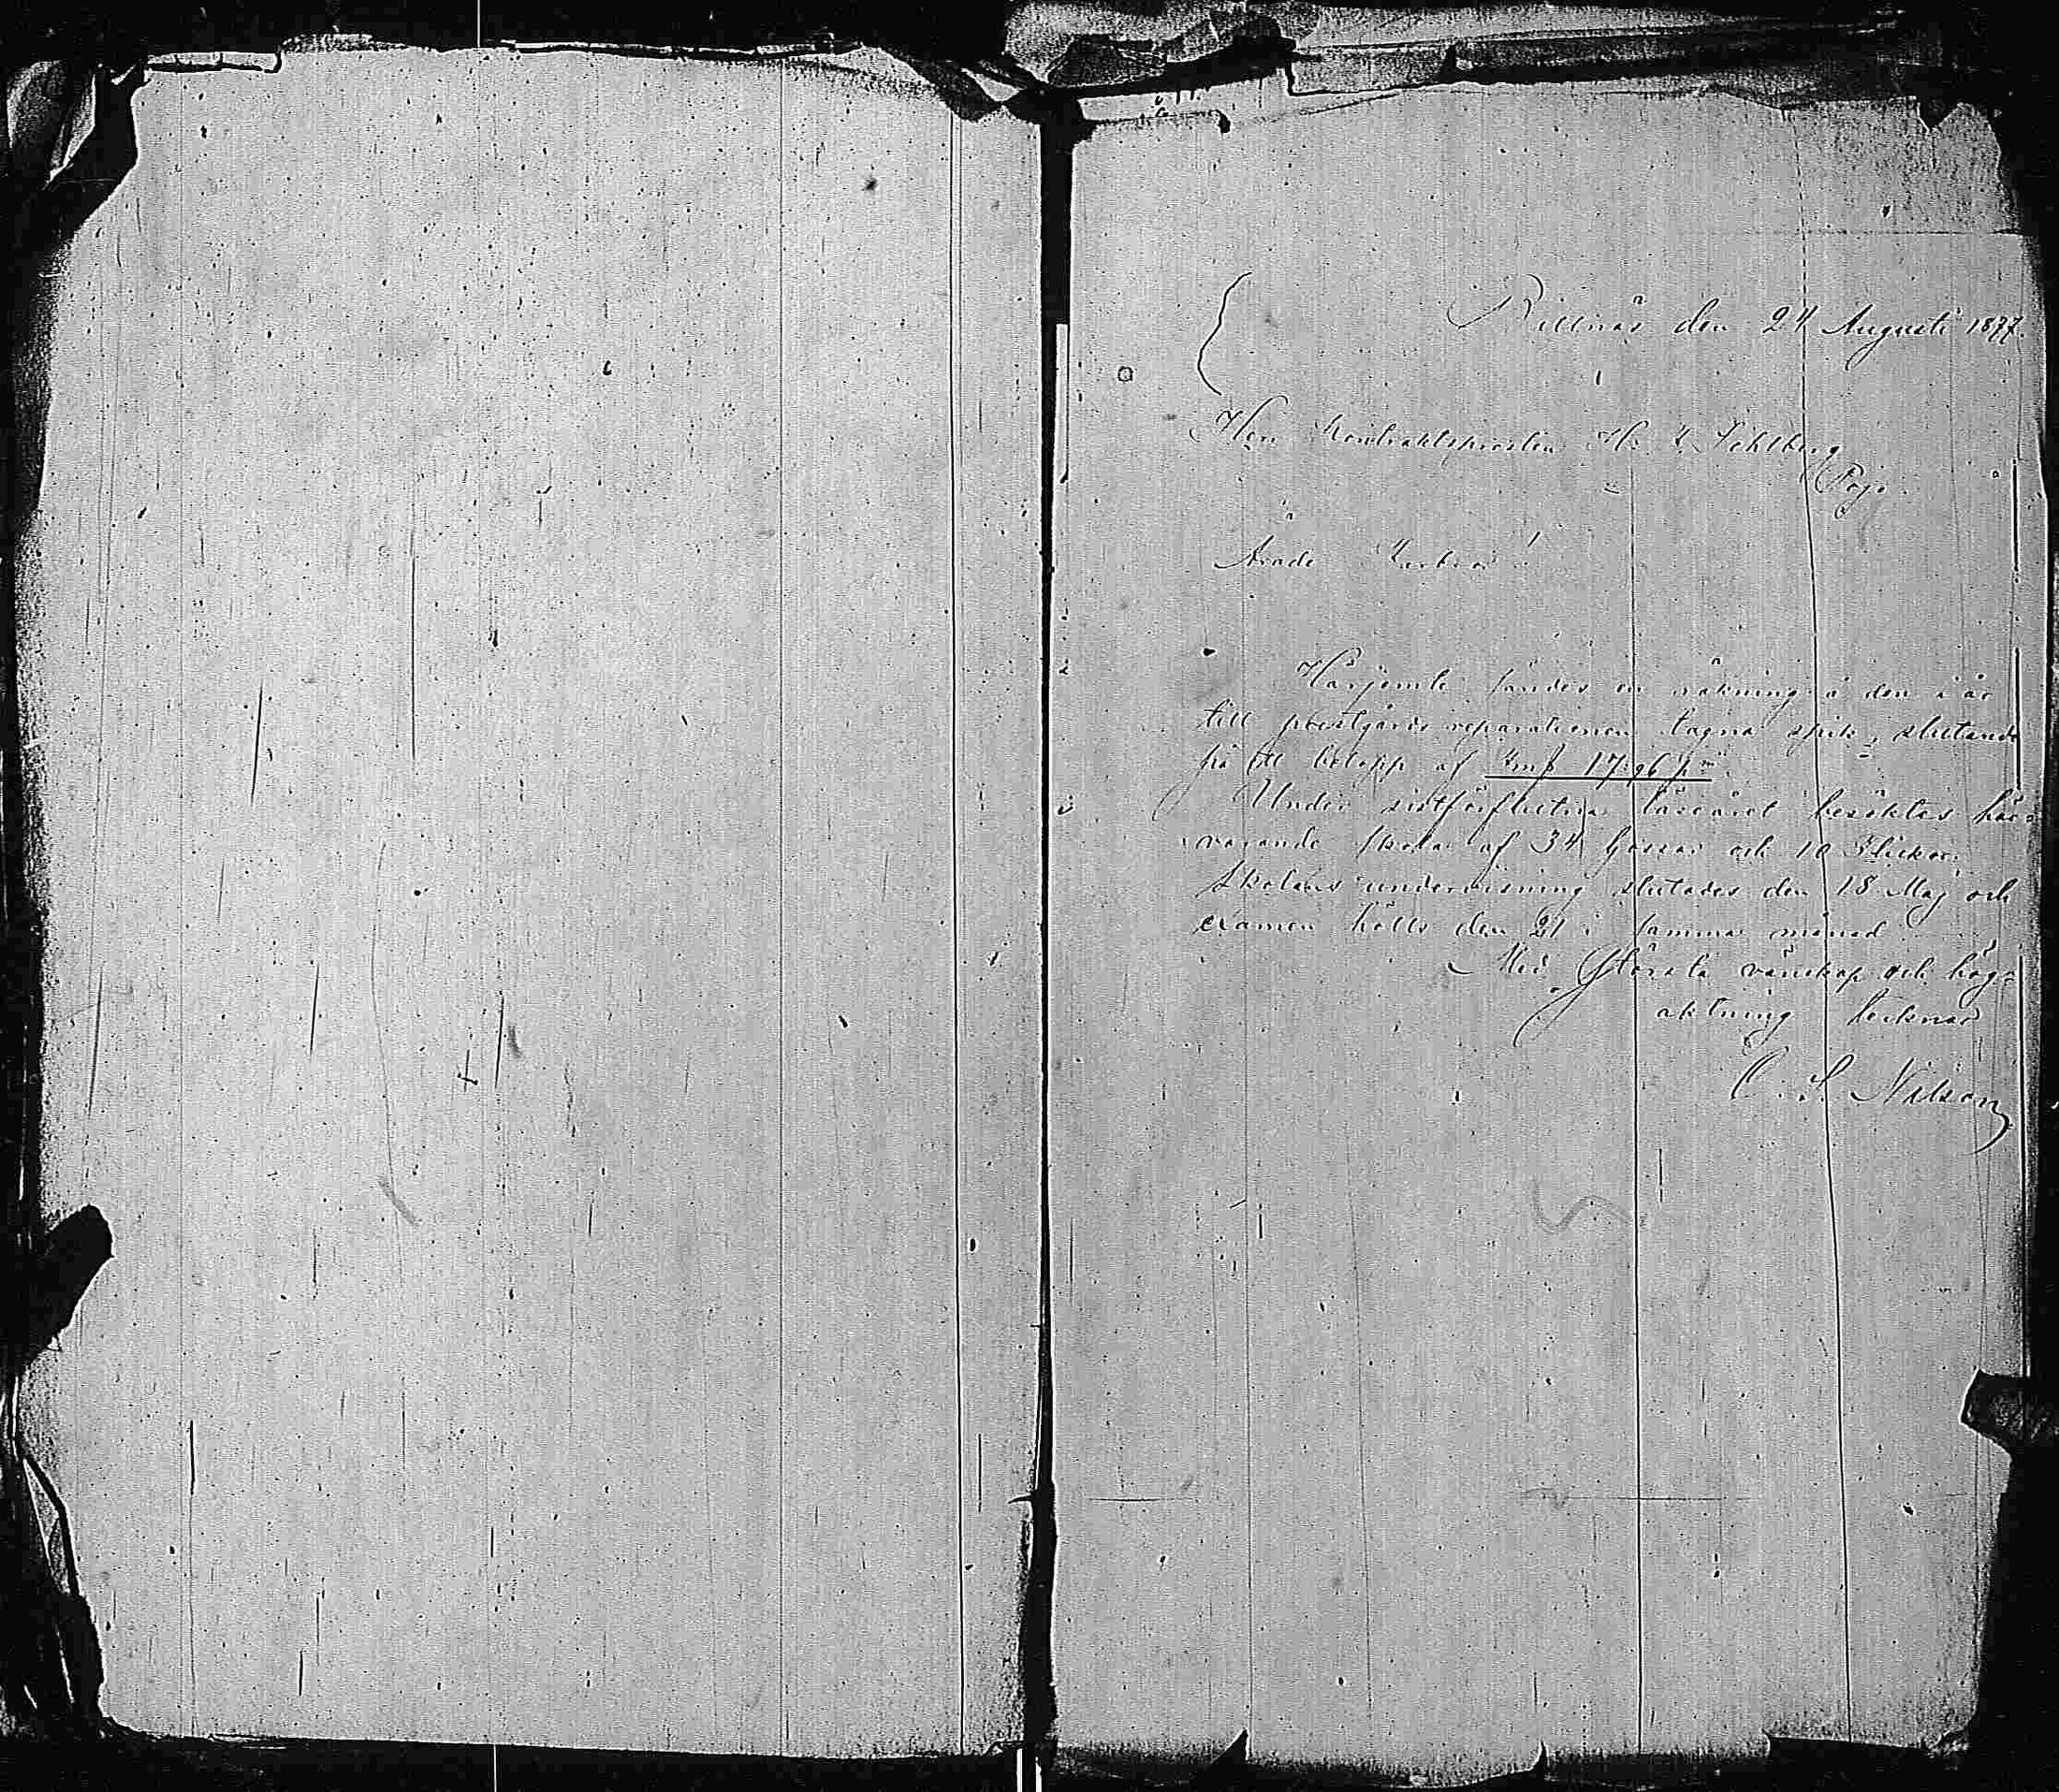 Billnäs den 24 Augusti 1877.
Herr Kontraktsprosten H. L. Sihlberg
Pojo.
Ärade Farbror!
Härjemte sändes en räkning å den i år
till prestgårds reparationen tagna spik, slutande
på ett belopp af Fmk 17:96 pni.
Under sistförflutna läseåret besöktes här-
varande skola af 34 Gossar och 10 Flickor.
Skolans undervisning slutades den 18 Maj och
examen hölls den 21 i samma månad.
Med största vänskap och hög-
aktning tecknar
C. L. Nilson